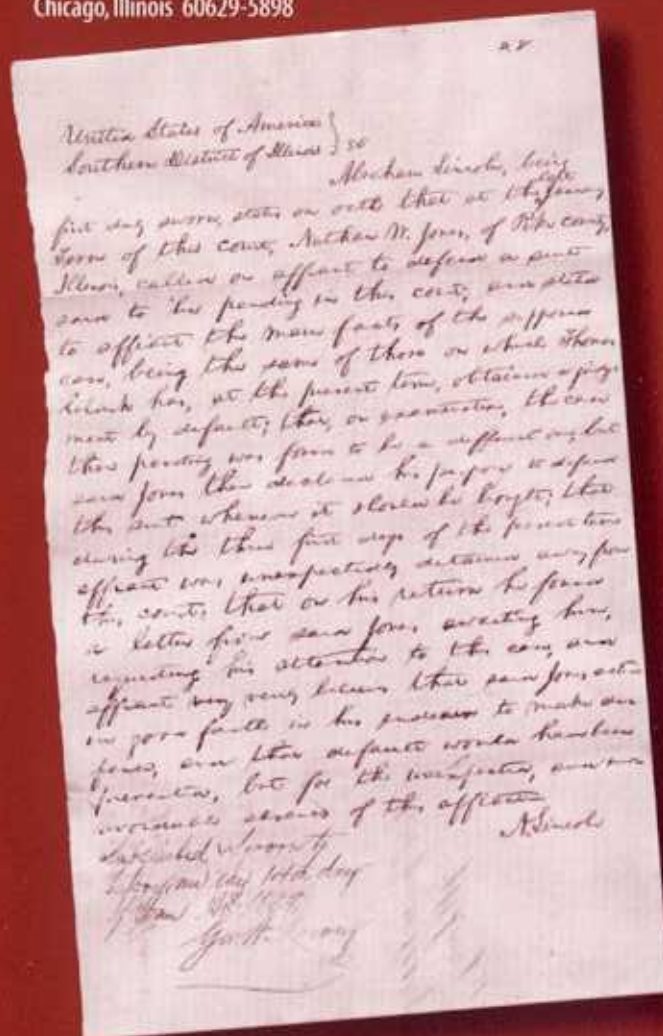 Chicago, Illinois 60629-5898
United States of America }
Southern District of Illinois } SS
Abraham Lincoln, being
first duly sworn, states on oath that at the last January
Term of this court, Nathan W. Jones, of Pike county,
Illinois, called on affiant to defend a suit
said to be pending in this court, and stated
to affiant the main facts of the supposed
case, being the same of those on which Thomas
has, at the present term, obtained a judg-
ment by default; that, on examination, the case
then pending was found to be a different one, but
said Jones then declared his purpose to defend
this suit whenever it should be brought; that
during the three first days of the present term
affiant was unexpectedly detained away from
this court; that on his return he found
a letter from said Jones awaiting him,
requesting his attention to this case, and
affiant very believes that said Jones acted
in good faith in his to make de
fence, and that default would have been
prevented, but for the unexpected, and un
avoidable absence of this affiant
A. Lincoln
Subscribed & sworn to
before me day
Geo. W.